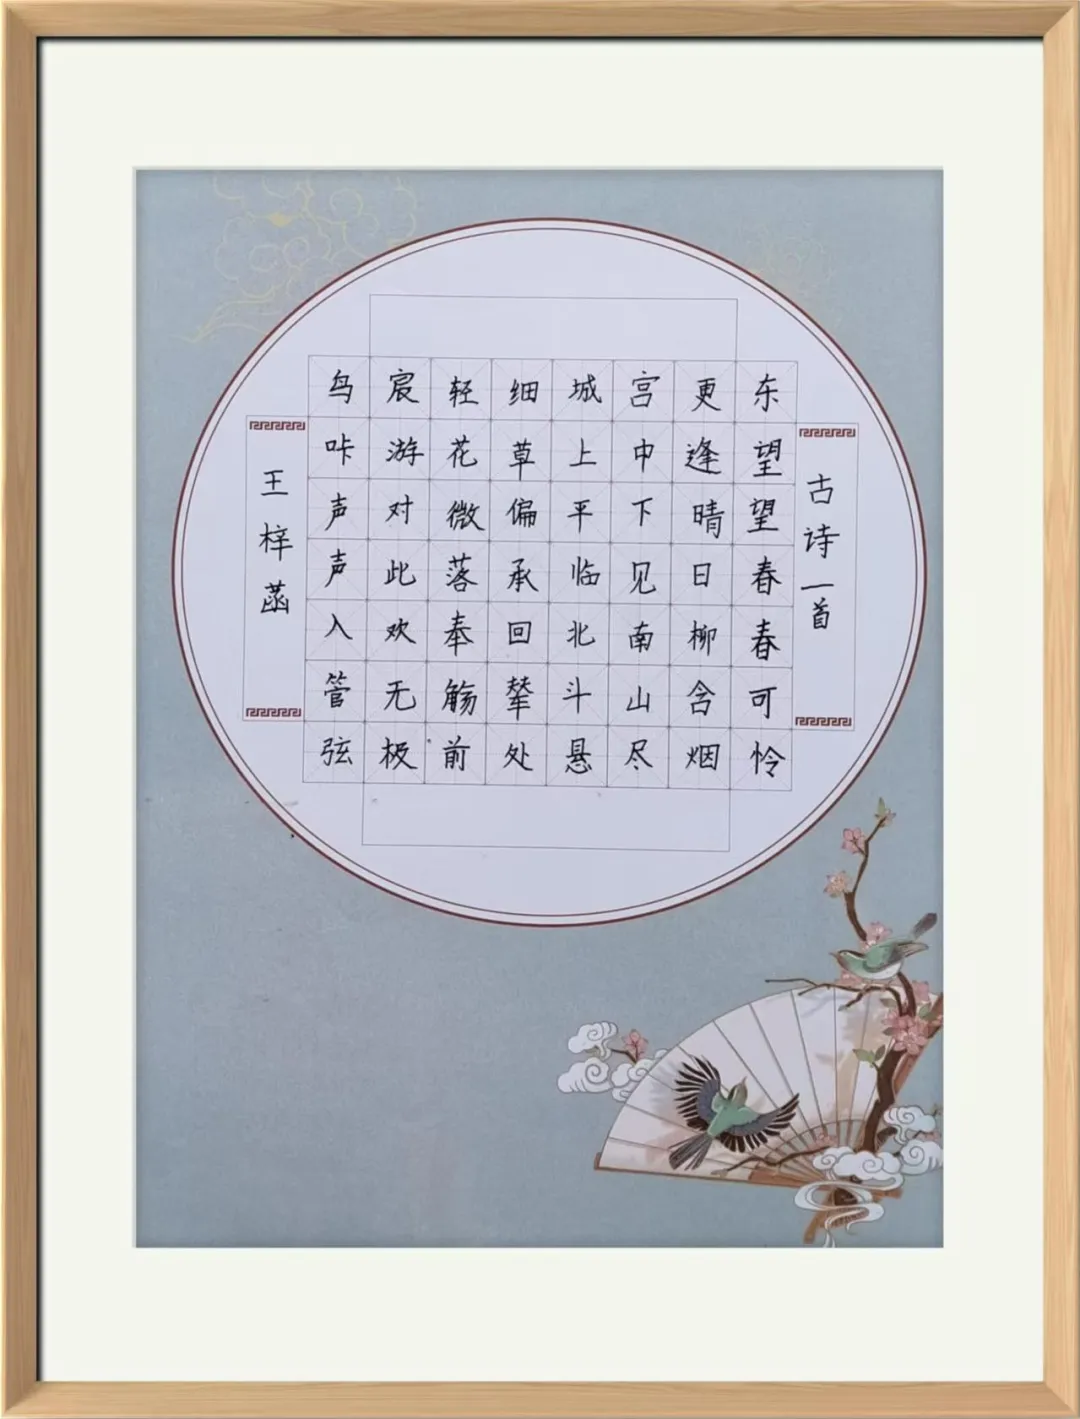 古诗一首
东望望春春可怜
更逢晴日柳含烟
宫中下见南山尽
城上平临北斗悬
细草偏承回辇处
轻花微落奉觞前
宸游对此欢无极
鸟咔声声入管弦
王梓菡